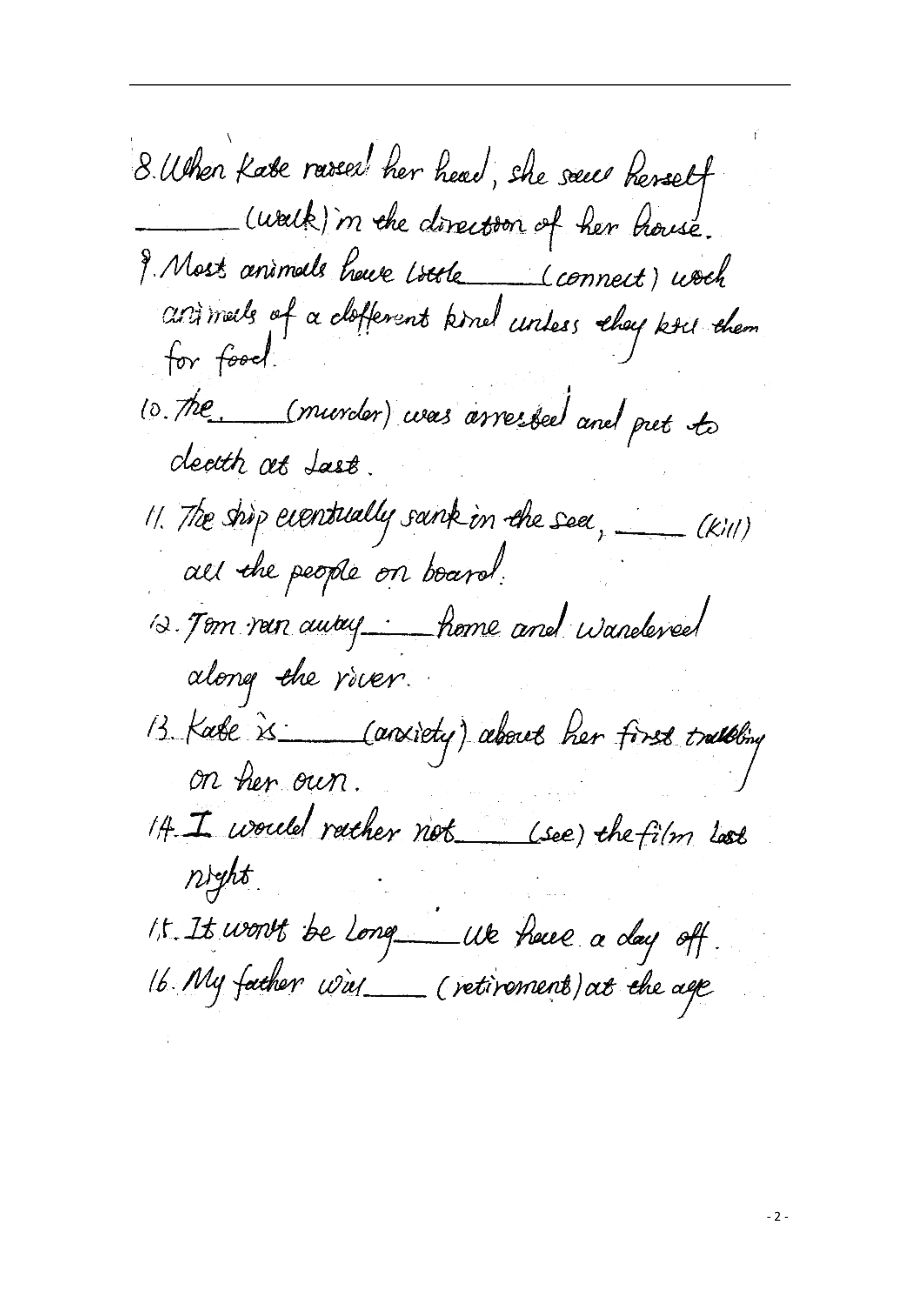 8. When Kate raised her head, she saw herself
______ (walk) in the direction of her house.
9. Most animals have little ______ (connect) with
animals of a different kind unless they kill them
for food.
10. The ______ (murder) was arrested and put to
death at last.
11. The ship eventually sank in the sea, ______ (kill)
all the people on board.
12. Tom ran away ______ home and wandered
along the river.
13. Kate is ______ (anxiety) about her first
on her own.
14. I would rather not ______ (see) the film last
night.
15. It won't be long ______ we have a day off.
16. My father will ______ (retirement) at the age
- 2 -